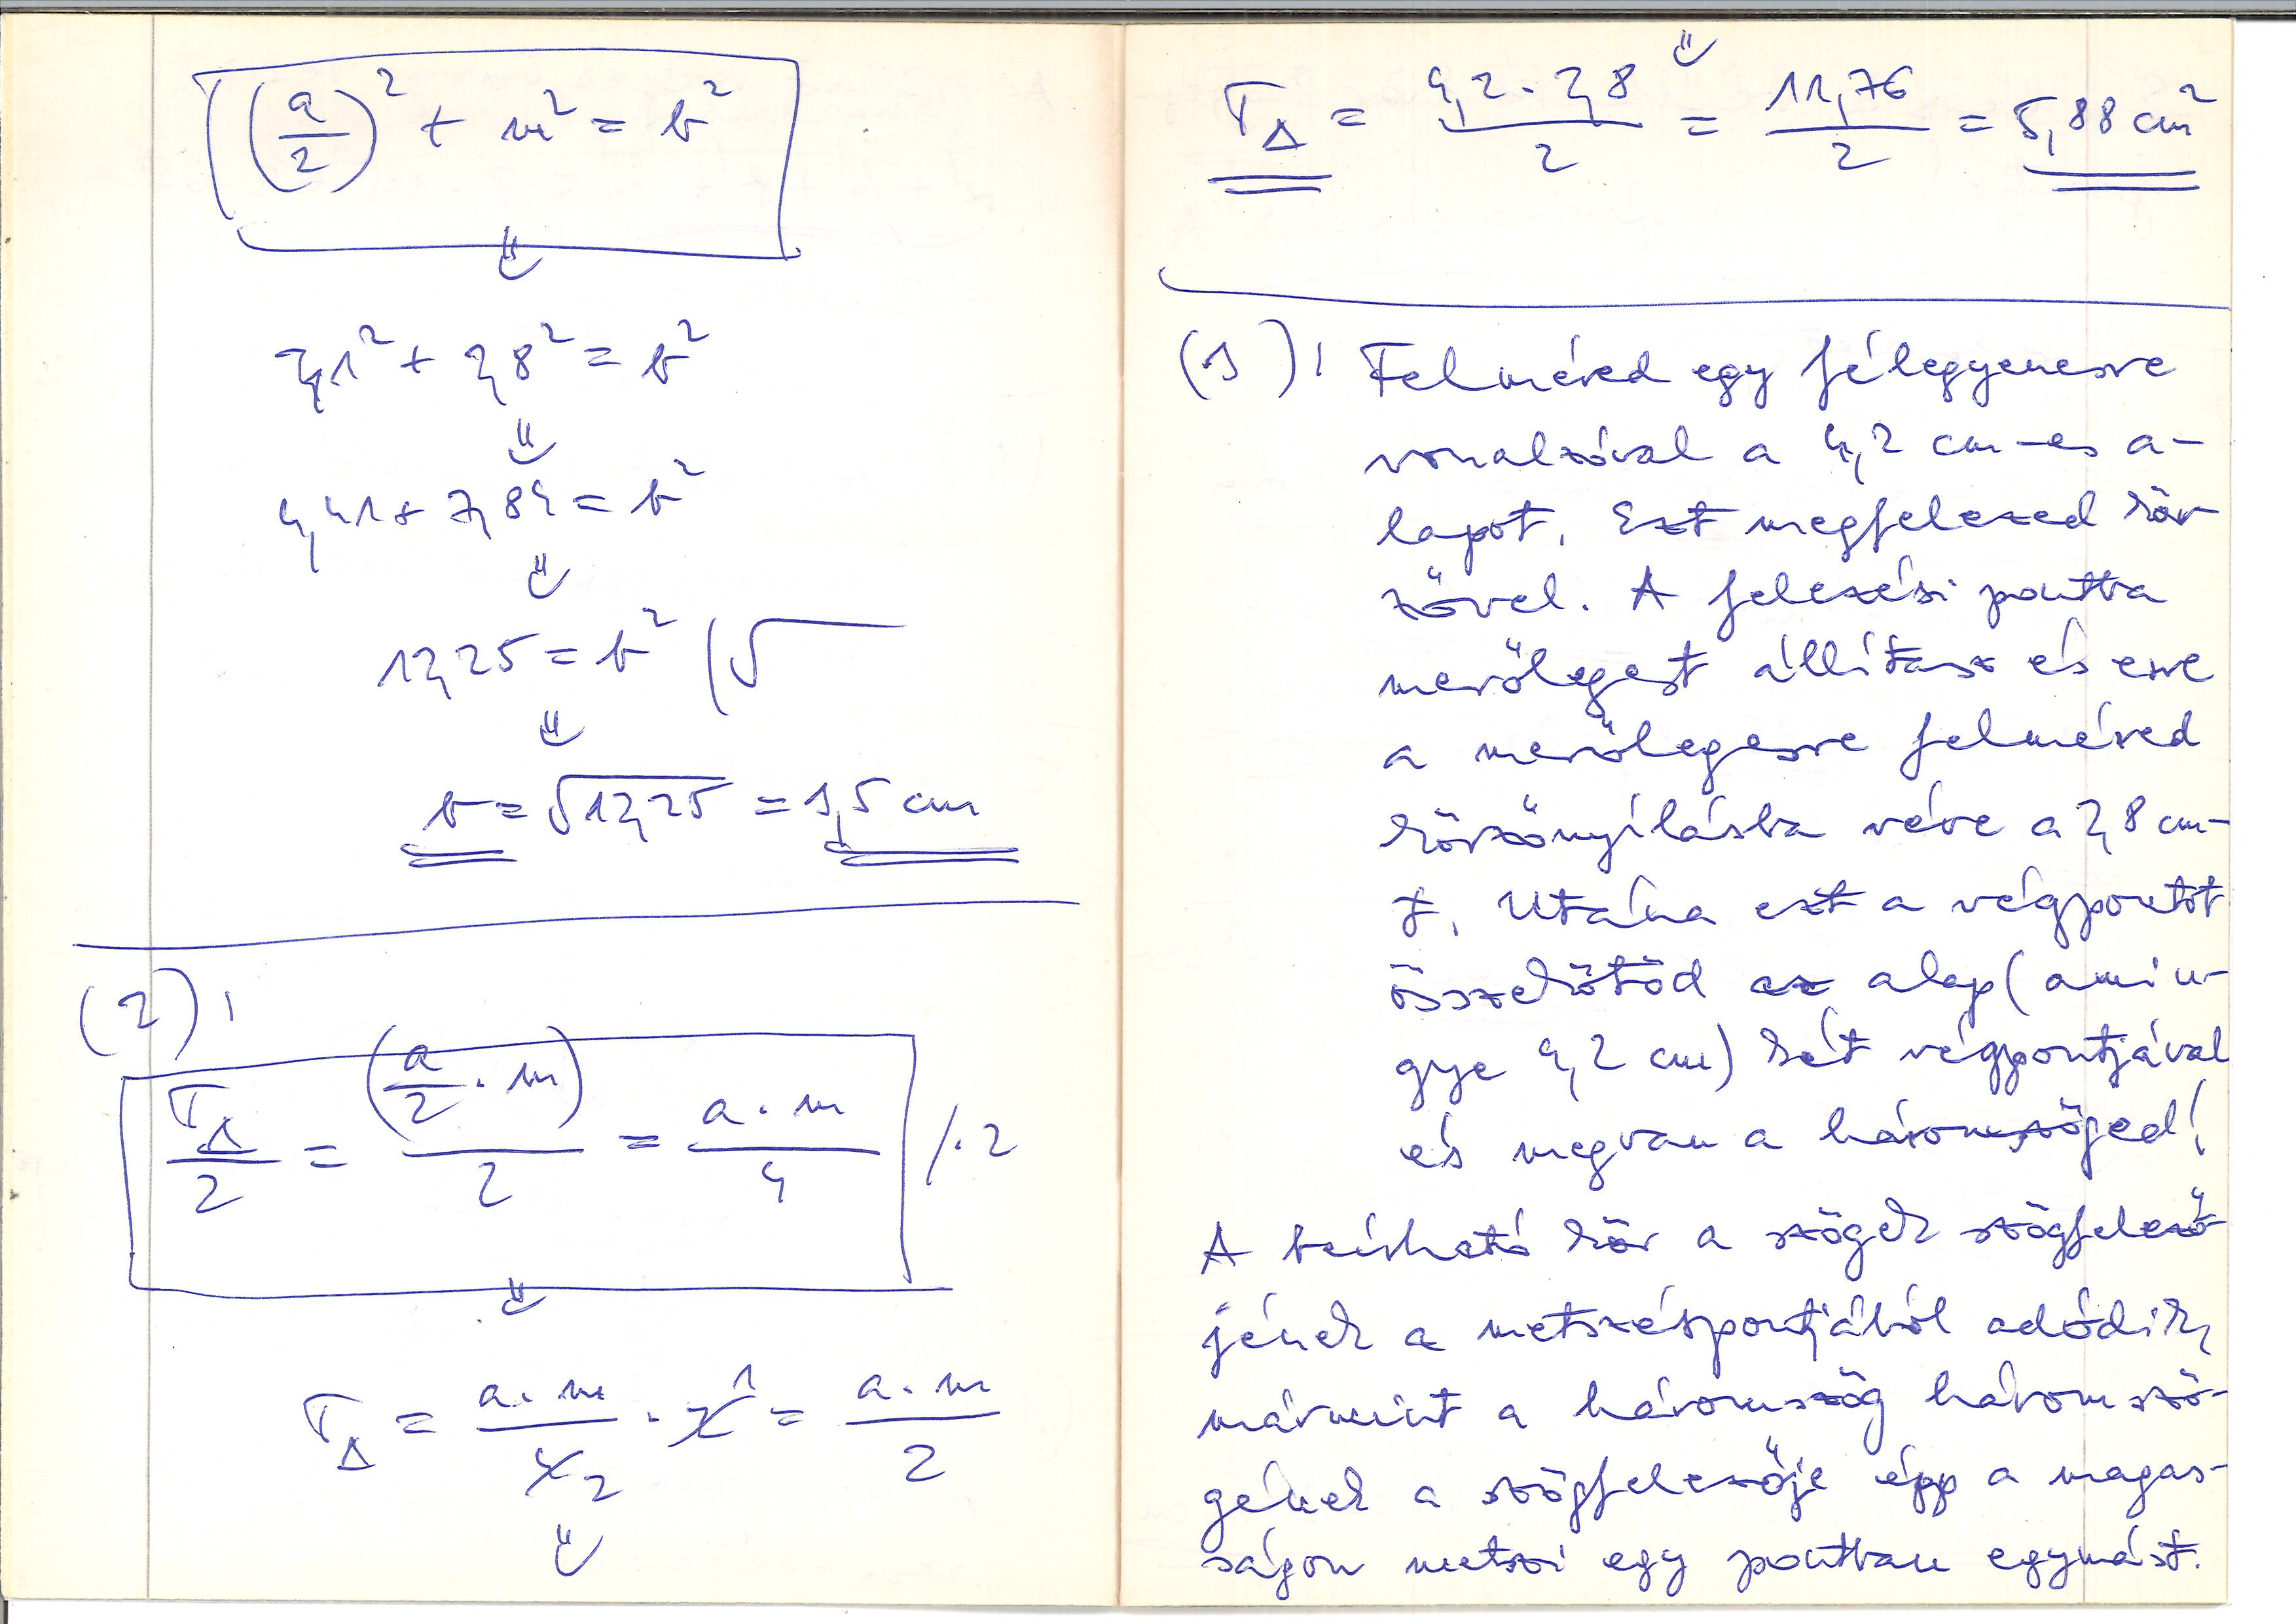 (a/2)² + m² = b²
⇓
2,1² + 2,8² = b²
⇓
4,41 + 7,84 = b²
⇓
12,25 = b² (√
⇓
b = √12,25 = 3,5 cm
(2)!
T△/2 = (a/2 · m)/2 = a · m/4 /·2
⇓
T△ = a · m/4 2 · 2 1 = a · m/2
⇓
T△ = 4,2 · 2,8/2 = 11,76/2 = 5,88 cm²
(3)! Felméred egy félegyenesre
vonalzóval a 4,2 cm-es a-
lapot. Ezt megfelezed kör-
zővel. A felezési pontba
merőlegest állítasz és erre
a merőlegesre felméred
körzőnyílásba véve a 2,8 cm-
t. Utána ezt a végpontot
összekötöd az alap (amin-
gye 4,2 cm) két végpontjával
és megvan a háromszöged!
A beírható kör a szögek szögfelező-
jének a metszéspontjából adódik,
mármint a háromszög három szö-
gének a szögfelezője épp a magas-
ságon metszi egy pontban egymást.